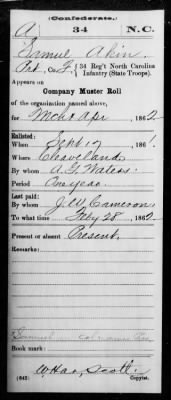 (Confederate.)
A 34 N.C.
Samuel Akin
Pvt., Co. F, 34 Reg't North Carolina
Infantry (State Troops).
Appears on
Company Muster Roll
of the organization named above,
for Mch & Apr, 1862.
Enlisted:
When Sept 17, 1861.
Where Cleaveland
By whom A. G. Waters
Period One year
Last paid:
By whom J. W. Cameron
To what time Feby 28, 1862.
Present or absent Present
Remarks:
Book mark:
(642) Copyist.